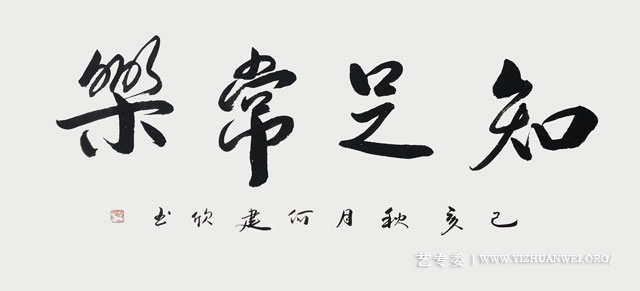 知足常樂
己亥秋月何建欣书
艺专委 | WWW.YIZHUANWEI.ORG/